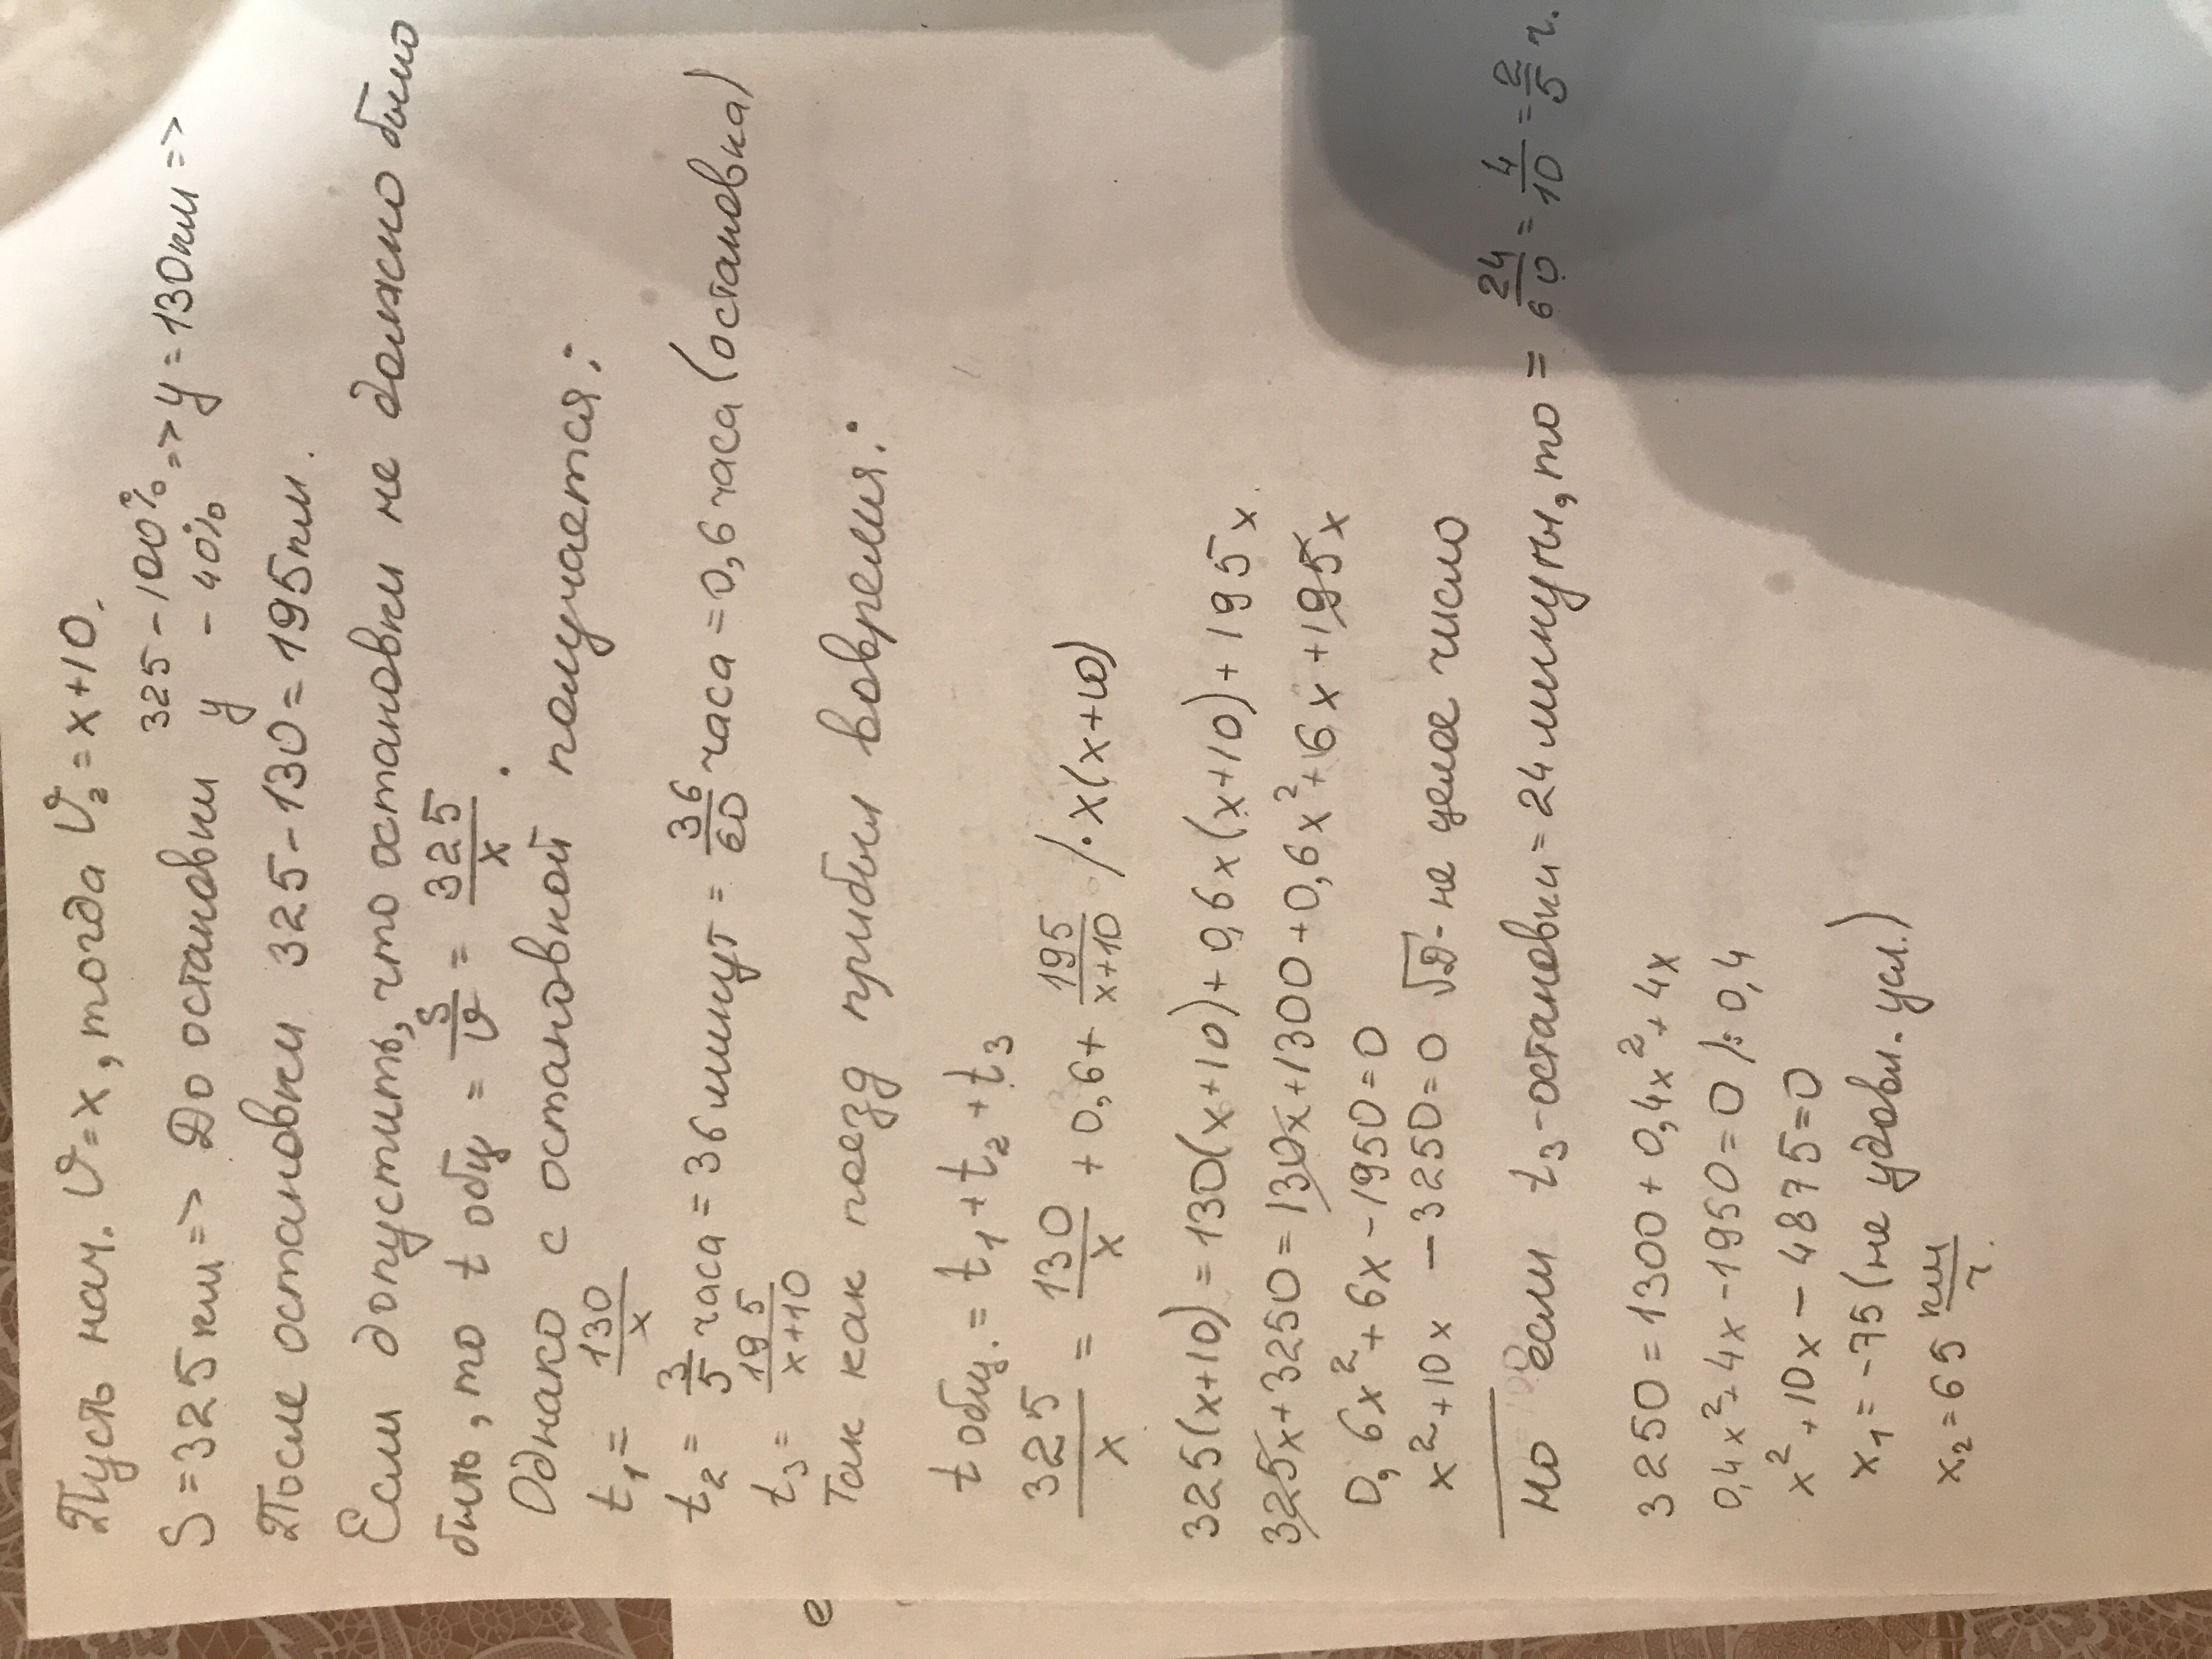 Пусть нач. V=x, тогда V₂=x+10.
S=325км=> До остановки 325-100% y-40% =>y=130км=>
После остановки 325-130=195км.
Если допустить, что остановки не должно было
быть, то t общ = S/V = 325/x.
Однако с остановкой получается:
t₁= 130/x
t₂= 3/5 часа=36минут= 36/60 часа=0,6часа(остановка)
t₃= 195/x+10
Так как поезд прибыл вовремя:
t общ.=t₁+t₂+t₃
325/x = 130/x + 0,6+ 195/x+10 /·x(x+10)
325(x+10)=130(x+10)+0,6x(x+10)+195x
325x+3250=130x+1300+0,6x²+6x+195x
0,6x²+6x-1950=0
x²+10x-3250=0 √D-не целое число
Но если t₃-остановки=24минуты,то= 24/60=4/10=2/5 ч.
3250=1300+0,4x²+4x
0,4x²+4x-1950=0 /:0,4
x²+10x-4875=0
x₁=-75(не удовл.усл.)
x₂=65 км/ч.
е